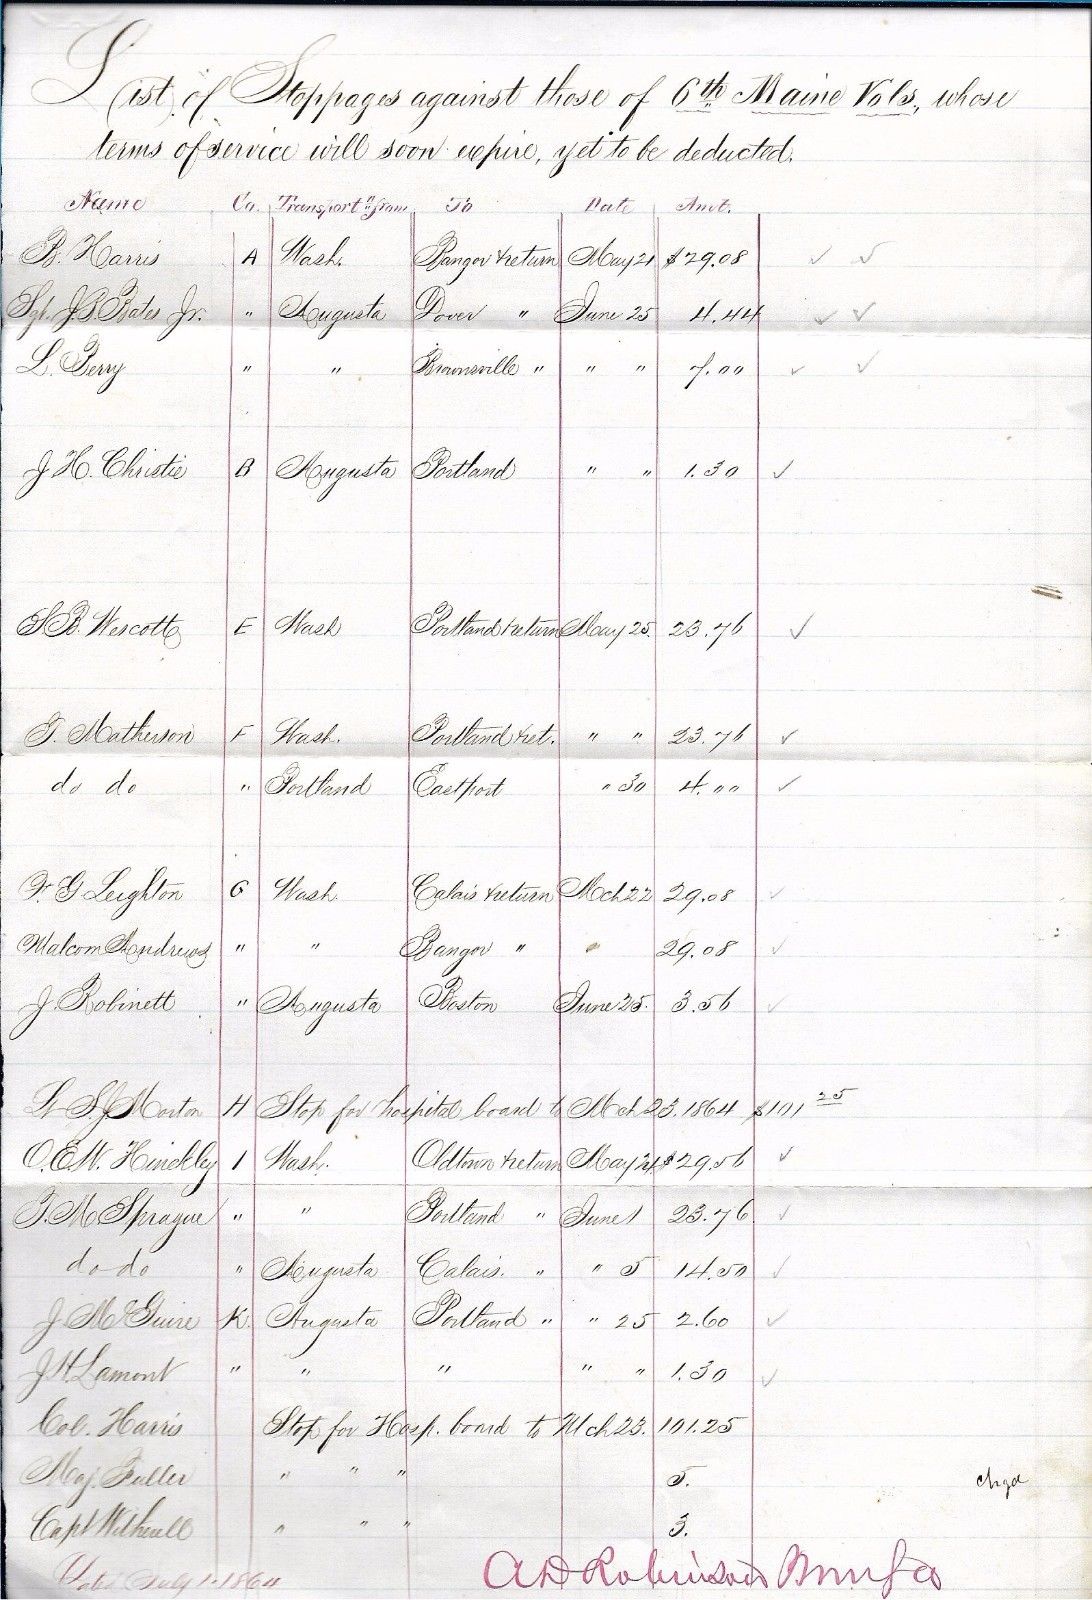 List of Stoppages against those of 6th Maine Vols., whose
terms of service will soon expire, yet to be deducted.
Name Co. Transport'n from To Date Amt.
B. Harris A Wash. Bangor & return May 21 $29.08
Sgt. J.B. Bates Jr. " Augusta Dover " June 25 4.44
L. Berry " " Brownsville " " " 7.00
J H. Christie B Augusta Portland " " 1.30
S B. Wescott E Wash Portland & return May 25. 23.76
T. Matherson F Wash. Portland & ret. " " 23.76
do do " Portland Eastport " 30 4.00
F. G Leighton G Wash. Calais & return Mch 22 29.08
Malcom Andrews " " Bangor " " 29.08
J. Robinett " Augusta Boston June 25. 3.56
Lt S J Morton H Stop for hospital board to Mch 23. 1864 $101 25
O.E.W. Hinckley I Wash. Oldtown & return May 21 $29.56
T. M. Sprague " " Portland " June 1 23.76
do do " Augusta Calais. " " 5 14.50
J. McGuire K. Augusta Portland " " 25 2.60
J H Lamont " " " " " 1.30
Col. Harris Stop for Hosp. board to Mch 23. 101.25
Maj. Fuller " " " 5. chgd
Capt Witherell " " " 3.
Dated July 1. 1864
A D Robinson